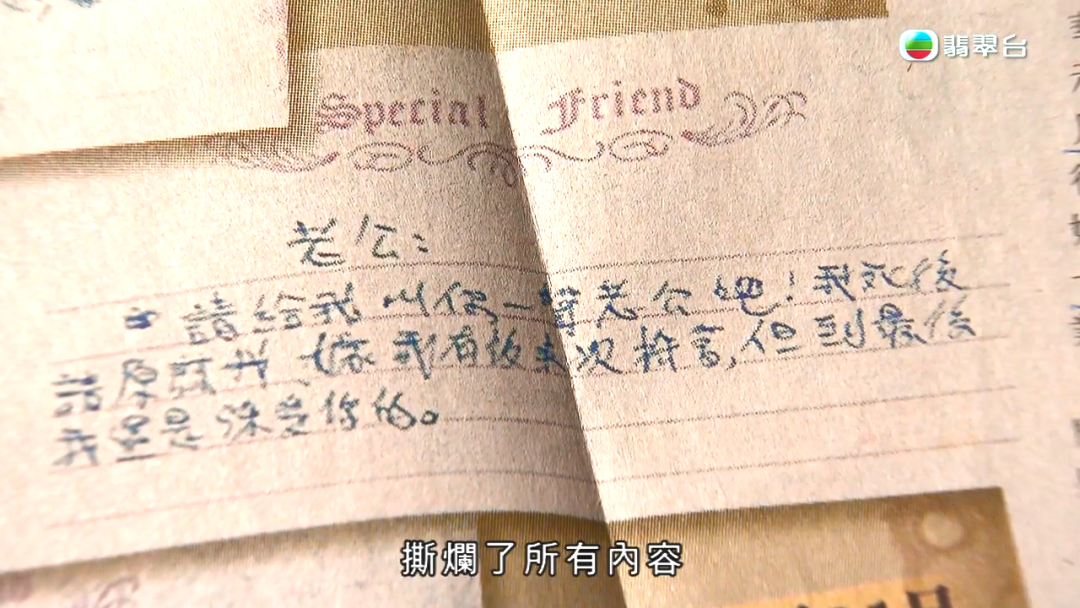 翡翠台
Special Friend
老公：
請給我叫你一聲老公吧！我死後
請原諒我，我有次言，但到最後
我還是深愛你的。
撕爛了所有內容